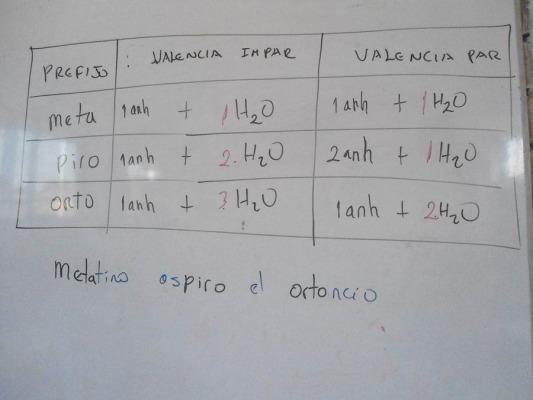 PREFIJO : VALENCIA IMPAR VALENCIA PAR
meta 1anh + 1H₂O 1anh + 1H₂O
piro 1anh + 2.H₂O 2anh + 1H₂O
orto 1anh + 3H₂O 1anh + 2H₂O
Metatino ospiro el ortoncio